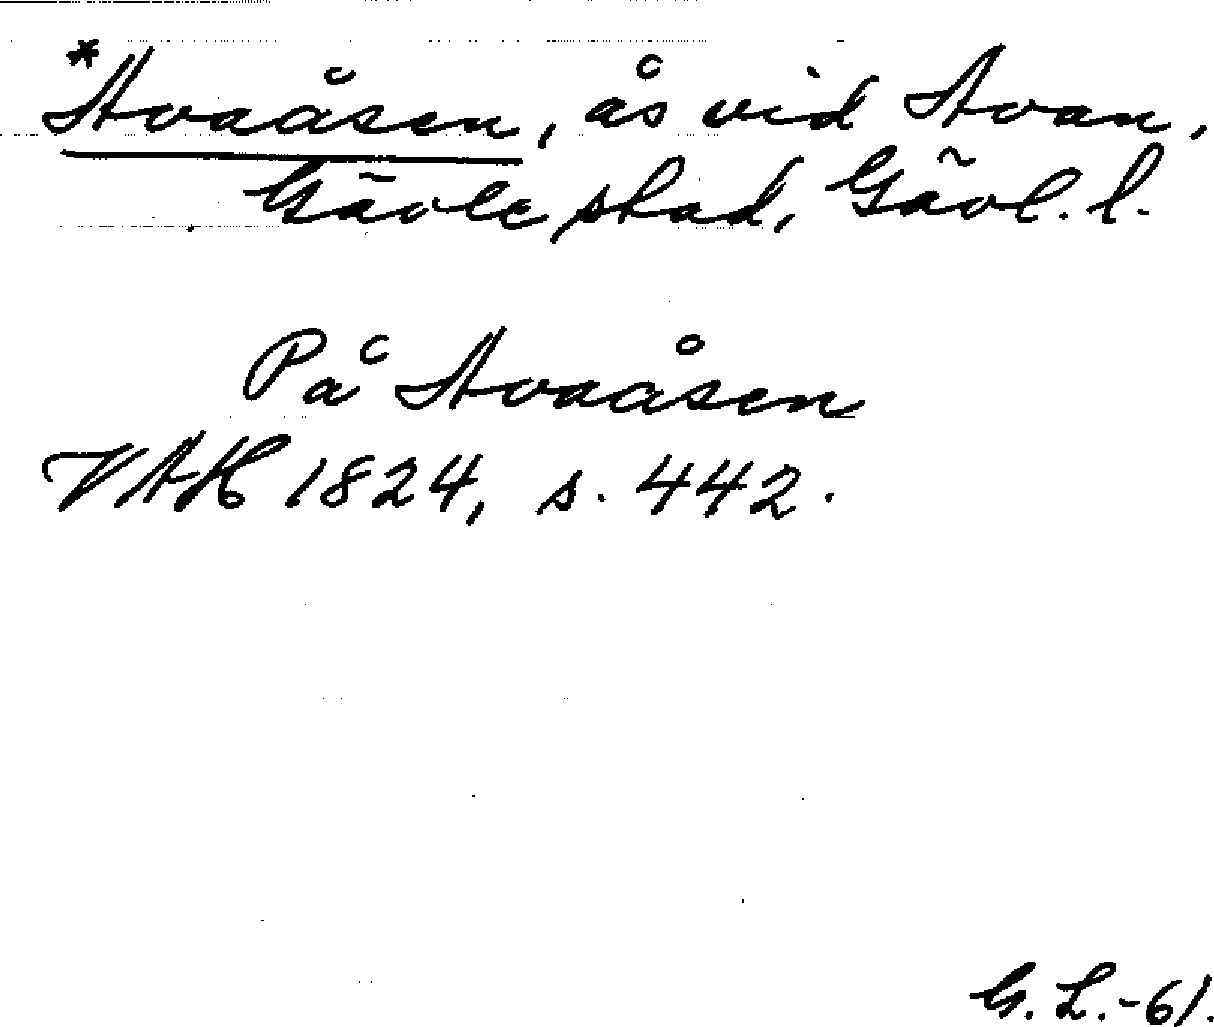 *Avaåsen, ås vid Avan,
Gävle stad, Gävl. l.
På Avaåsen
VAH 1824, s. 442.
G. L. -61.